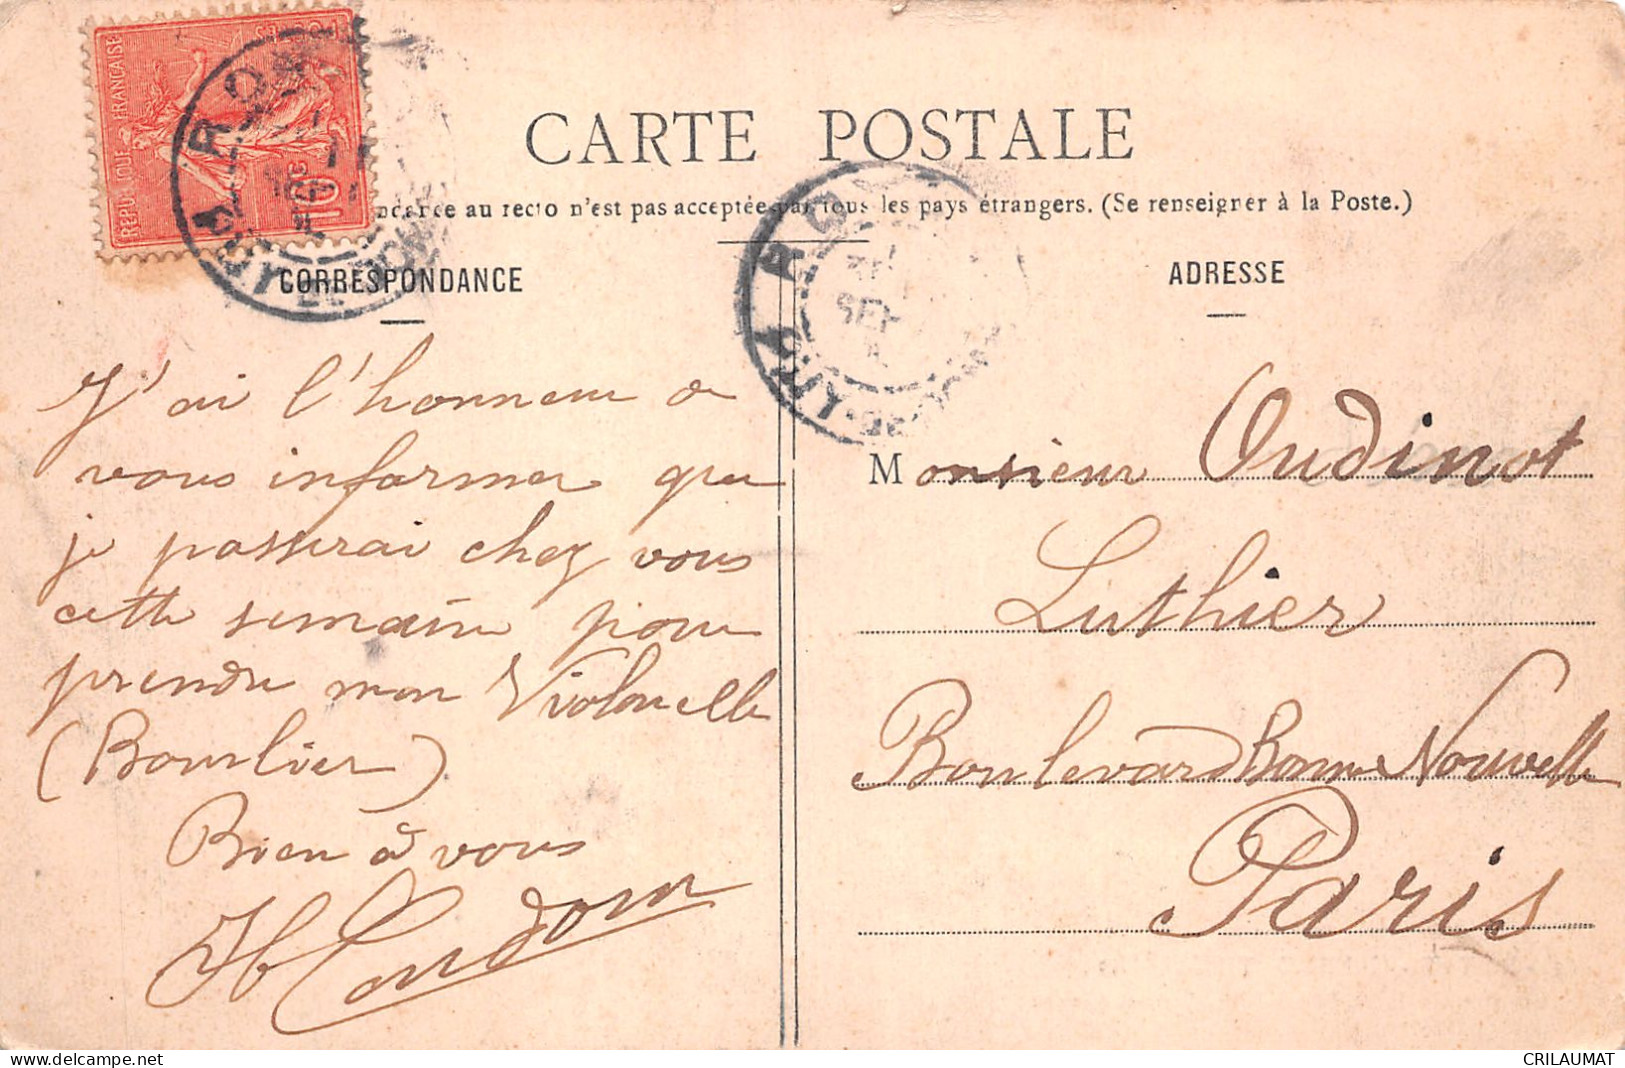 POSTES
REPUBLIQUE FRANÇAISE
10 c
CARTE POSTALE
ndance au recto n'est pas acceptée par tous les pays étrangers. (Se renseigner à la Poste.)
CORRESPONDANCE
J'ai l'honneur de
vous informer que
je passerai chez vous
cette semaine pour
prendre mon Violoncelle
(Bourlier)
Bien à vous
ADRESSE
SEPT
Monsieur Oudinot
Luthier
Boulevard Bonne Nouvelle
Paris
CRILAUMAT